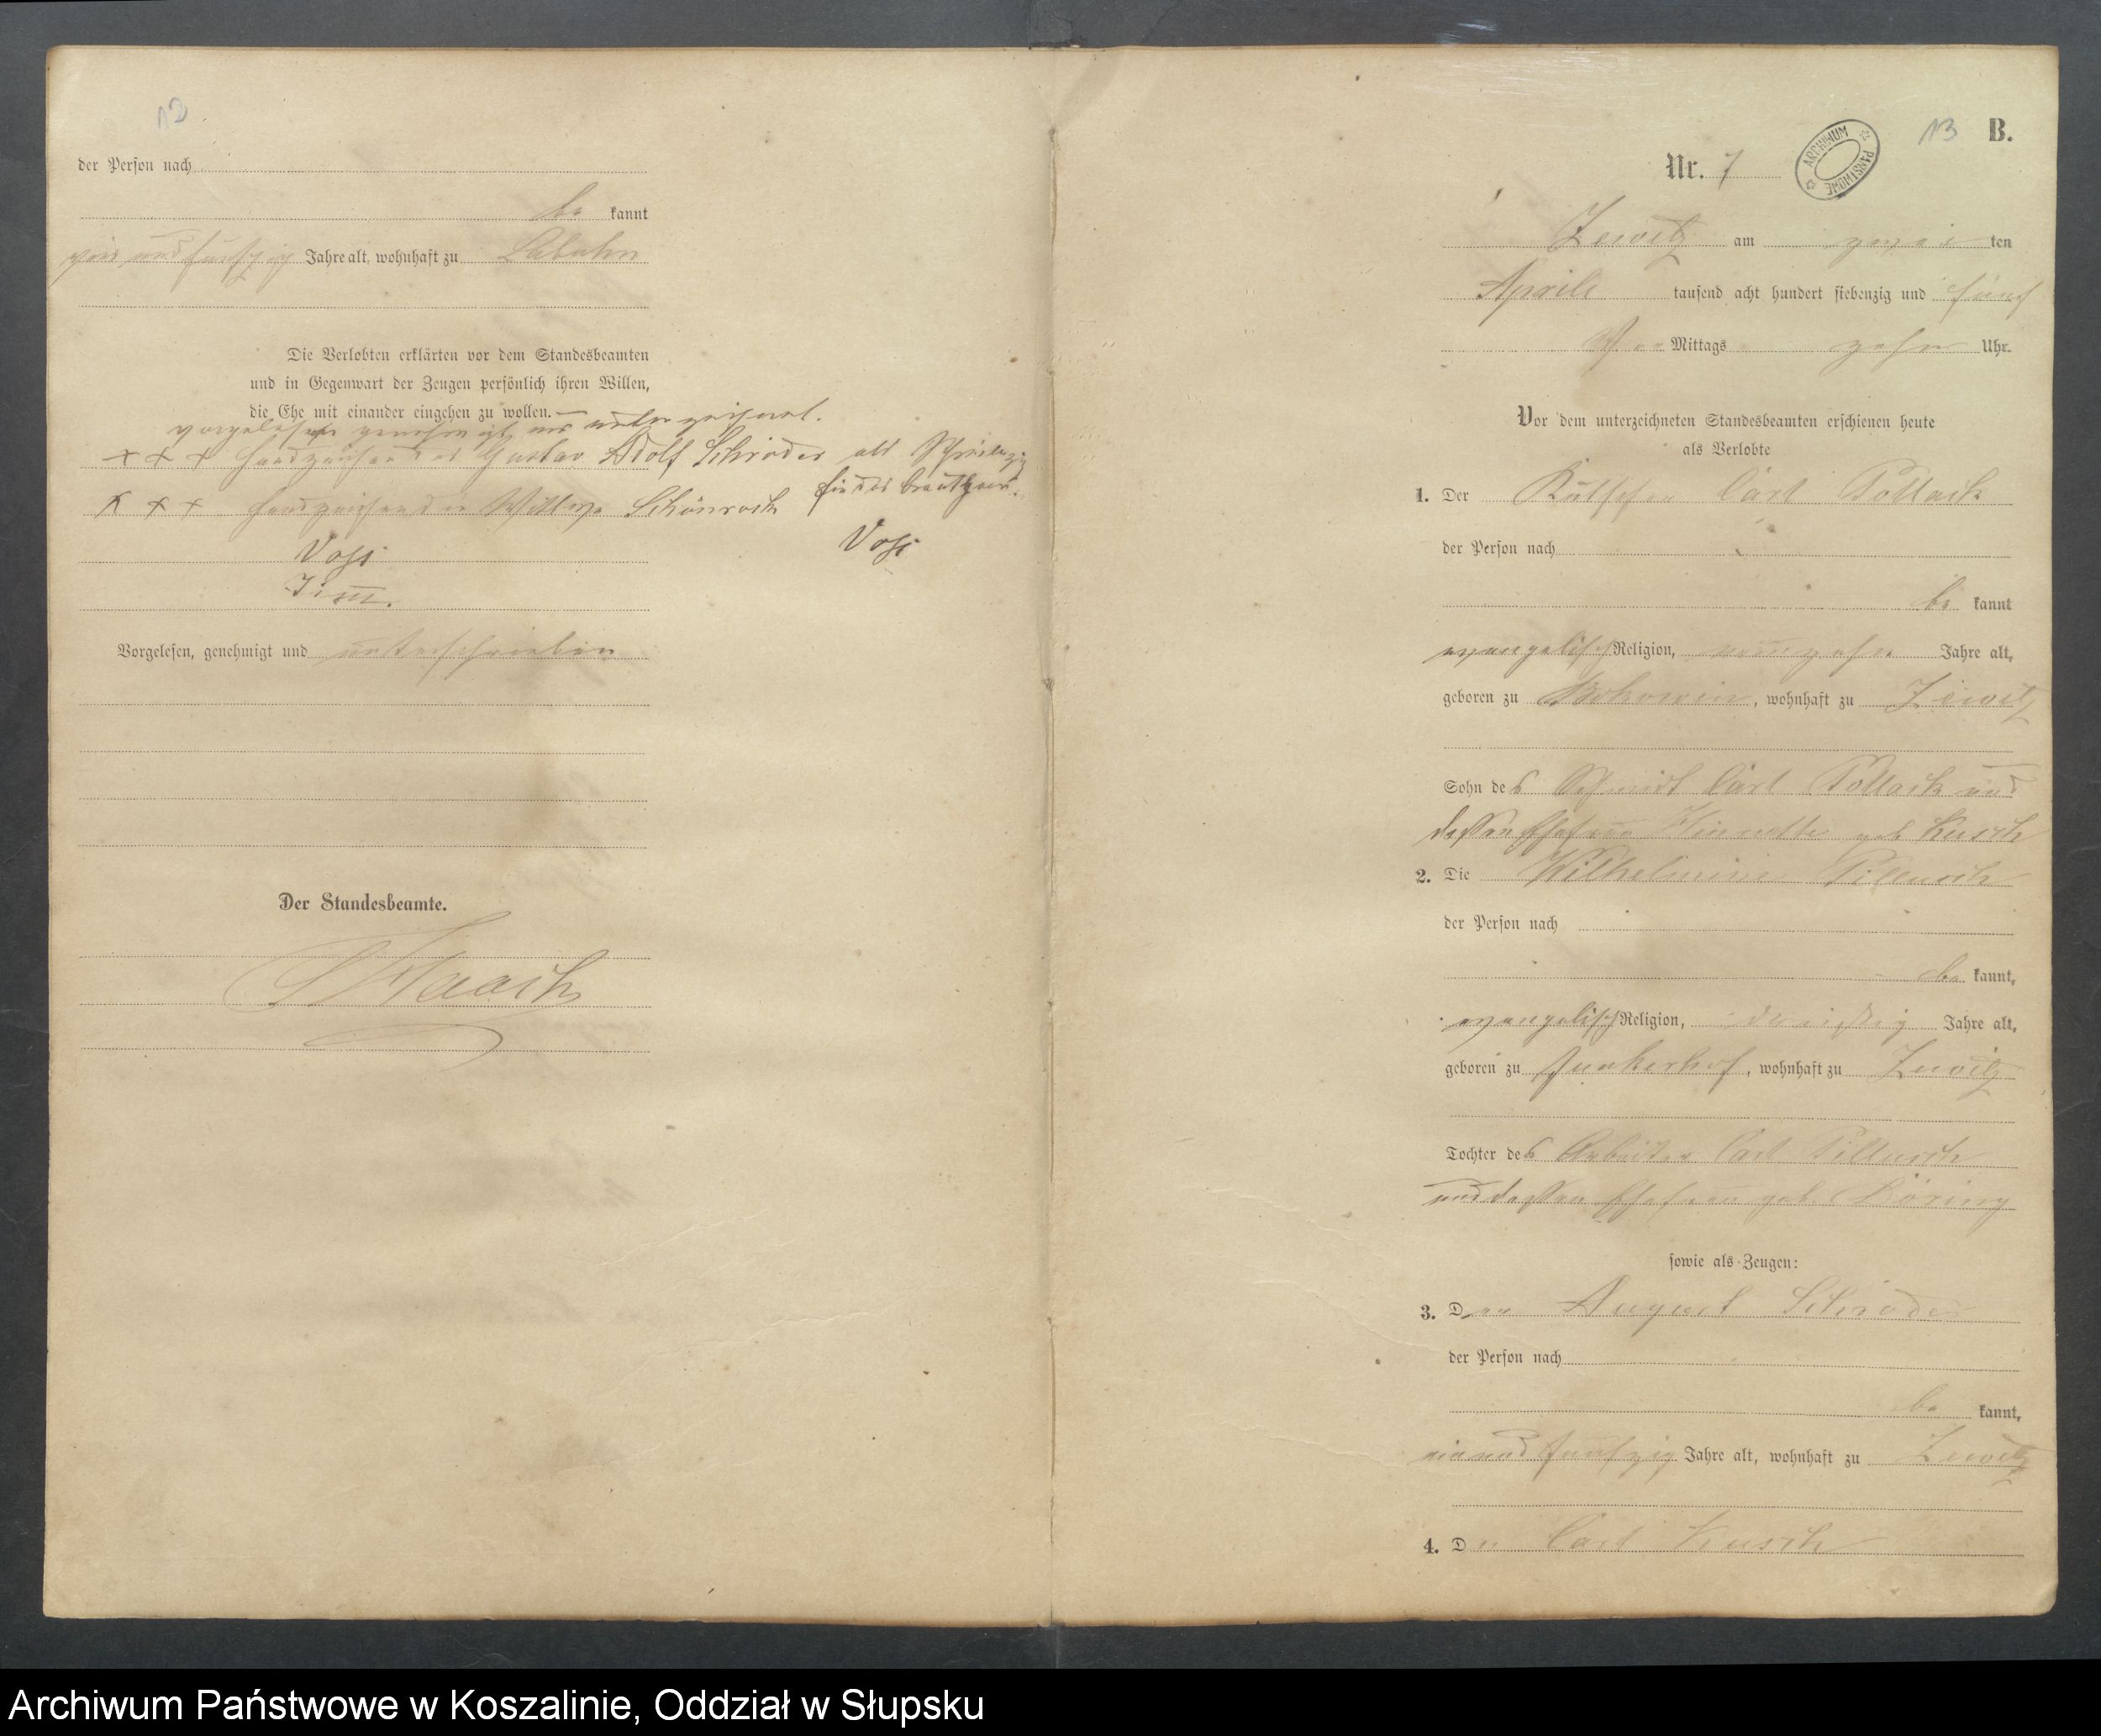 der Person nach
be kannt
vier und fünfzig Jahre alt, wohnhaft zu Labuhn
Die Verlobten erklärten vor dem Standesbeamten
und in Gegenwart der Zeugen persönlich ihren Willen,
die Ehe mit einander eingehen zu wollen. —
vorgelesen genehmigt und unterzeichnet.
+ + + Handzeichen des Gustav Adolf Schröder als
+ + + Handzeichen der Wittwe Schönrock
Voss
Voss
Timm.
Vorgelesen, genehmigt und unterschrieben
Der Standesbeamte.
13 B.
Nr. 7
ARCHIWUM PAŃSTWOWE
Zewitz am zwei ten
Aprill tausend acht hundert siebenzig und fünf
Vor Mittags zehn Uhr.
Vor dem unterzeichneten Standesbeamten erschienen heute
als Verlobte
1. Der Kutscher Carl Pollack
der Person nach
be kannt
evangelisch Religion, neunzehn Jahre alt,
geboren zu , wohnhaft zu Zewitz
Sohn des Schmidt Carl Pollack und
dessen Ehefrau geb Kusch
2. Die Wilhelmine Pillusch
der Person nach
be kannt,
evangelisch Religion, dreißig Jahre alt,
geboren zu Junkerhof, wohnhaft zu Zewitz
Tochter des Arbeiter Carl Pillusch
und dessen Ehefrau geb. Döring
sowie als Zeugen:
3. Der August Schröder
der Person nach
be kannt,
ein und fünfzig Jahre alt, wohnhaft zu Zewitz
4. Der Carl Kusch
Archiwum Państwowe w Koszalinie, Oddział w Słupsku